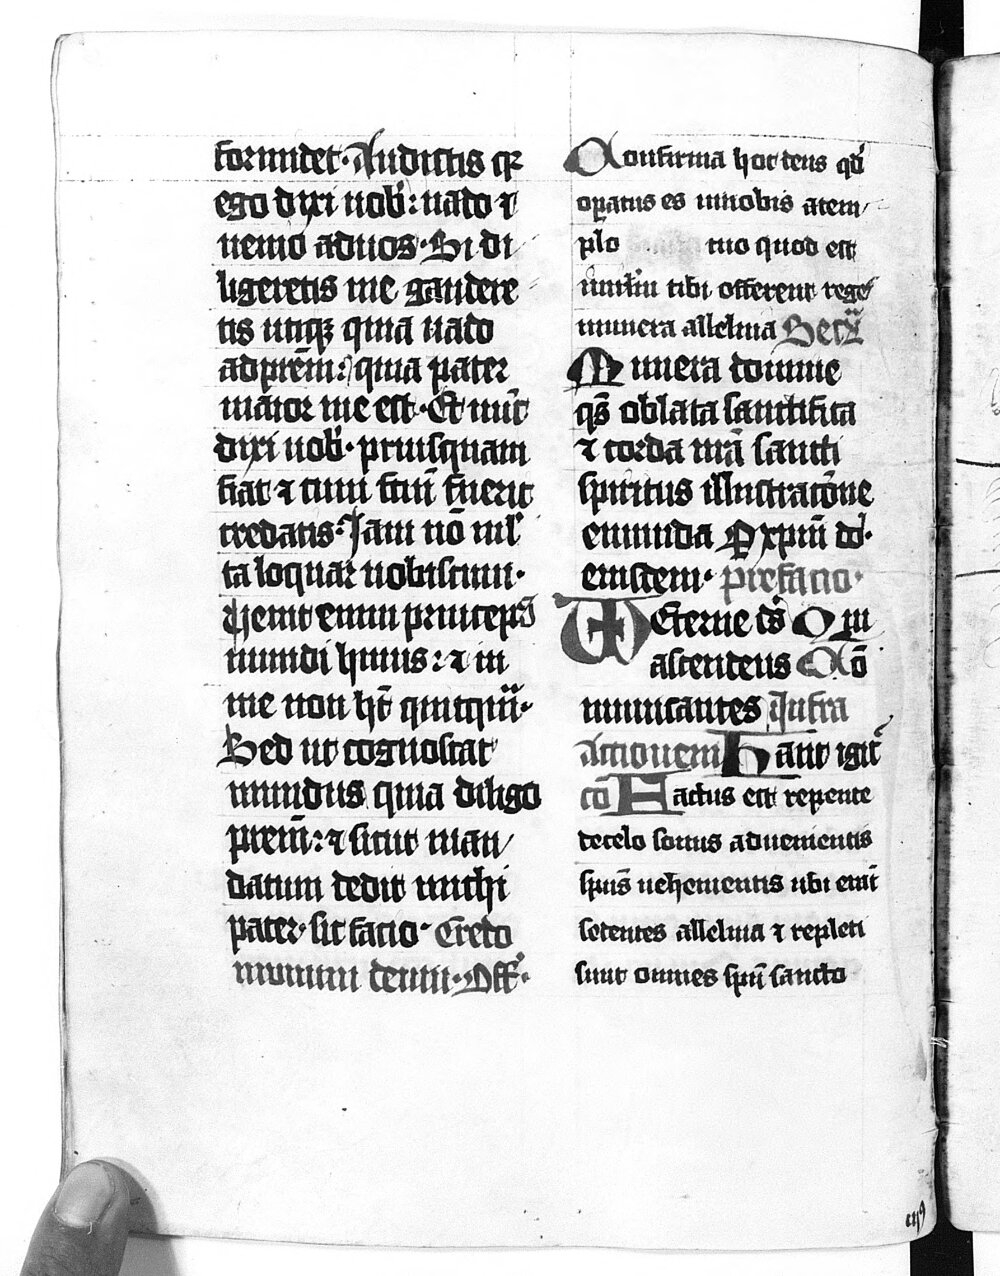 formidet. Audistis qꝛ
ego dixi uob̉: uado ⁊
uenio aduos. Si di
ligeretis me gaudere
tis utiqꝫ quia uado
adpr̄em: quia pater
maior me est. Et nūc
dixi uob̉. priusquam
fiat ⁊ cum fc̄um fuerit
credatis. Jam nō ml̉
ta loquar uobiscum.
Uenit enim princeps
mundi huius: ⁊ in
me non hꝫ quicqm̄.
Sed ut cognoscat
mundus quia diligo
pr̄em: ⁊ sicut man
datum dedit michi
pater. sic facio. Credo
inunum deum. Off̄.
Confirma hoc deus qd̉
opatus es innobis atem
plo tuo quod est
inirl̄m tibi offerent reges
munera alleluia Secr̄
Munera domine
qs̄ oblata sanctifica
⁊ corda nr̄a sancti
spiritus illustratōne
emunda P xpm̄ d.
eiusdem. prefacio.
UD Eterne ds̄ Qui
ascendens Cō
municantes Infra
Actionem Hanc igit̄
cō Factus est repente
decelo sonus aduenientis
sp̄us uehementis ubi erāt
sedentes alleluia ⁊ repleti
sunt omnes sp̄u sancto